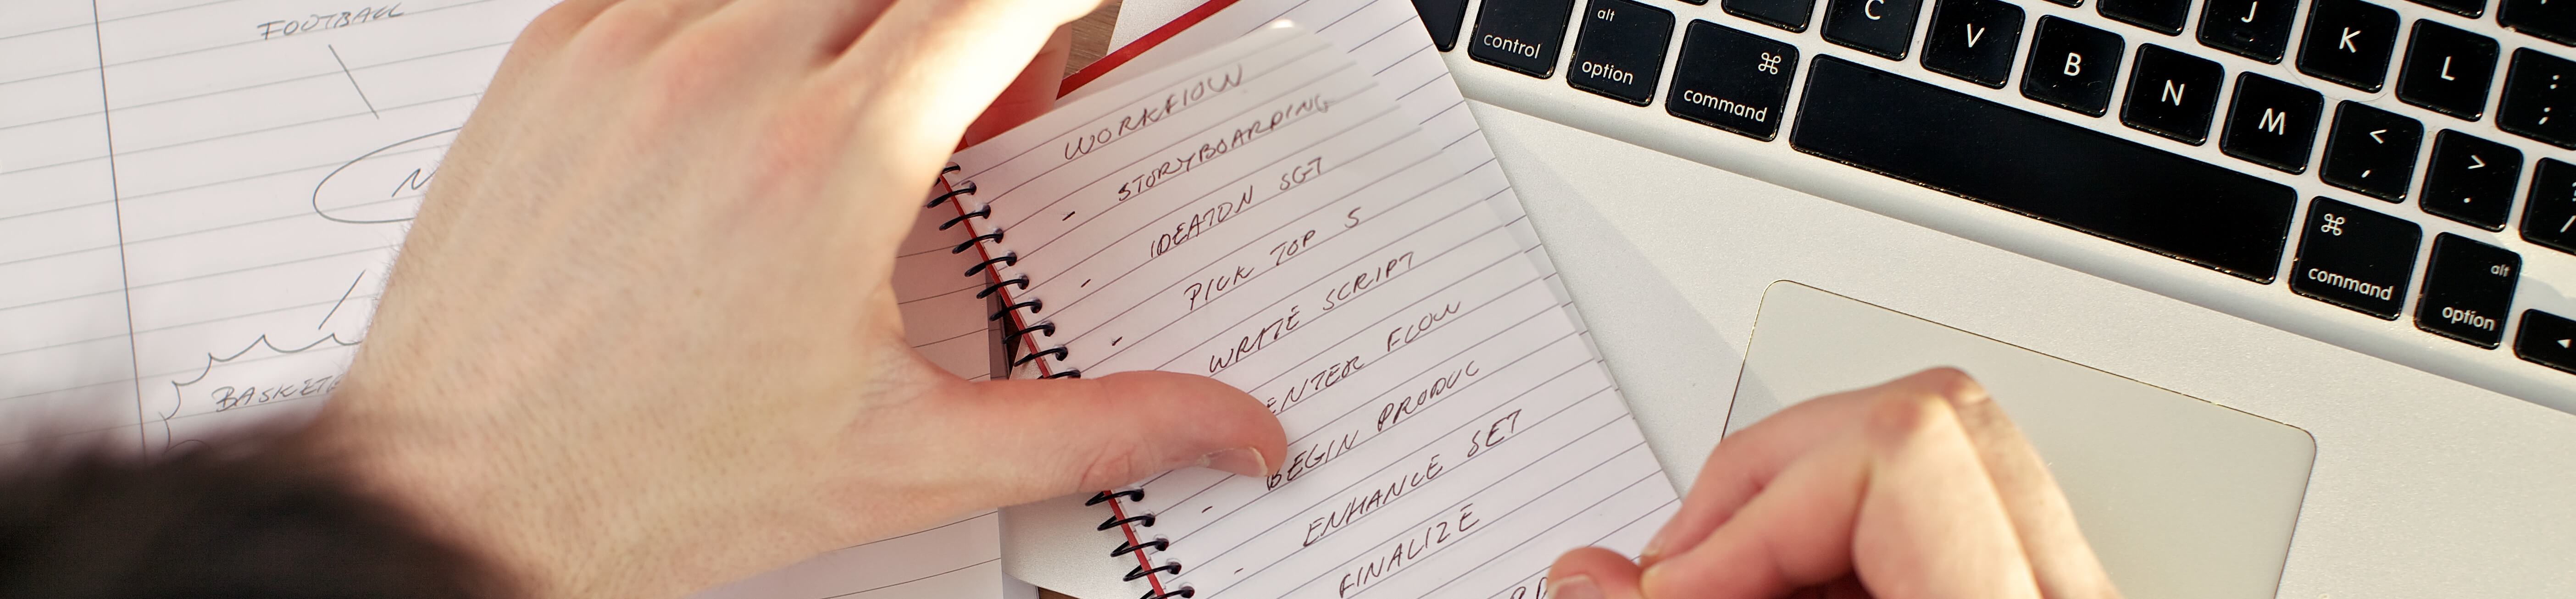 FOOTBALL
WORKFLOW
- STORYBOARDING
- IDEATON SGT
- PICK TOP 5
WRITE SCRIPT
ENTER FLOW
BEGIN PRODUC
- ENHANCE SET
- FINALIZE
control
alt
option
⌘
command
C
V
B
N
M
J
K
L
:
;
<
,
>
.
⌘
command
alt
option